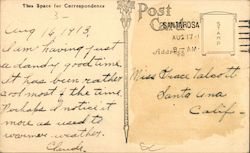 This Space for Correspondence
Post
SANTA ROSA
AUG 17
AM
STAMP
Aug 16, 1913.
I am having just
a dandy good time.
It has been rather
cool most of the time.
Perhaps I notice it
more as used to
warmer weather.
Claude.
Miss Grace Talcott
Santa Ana
Calif.